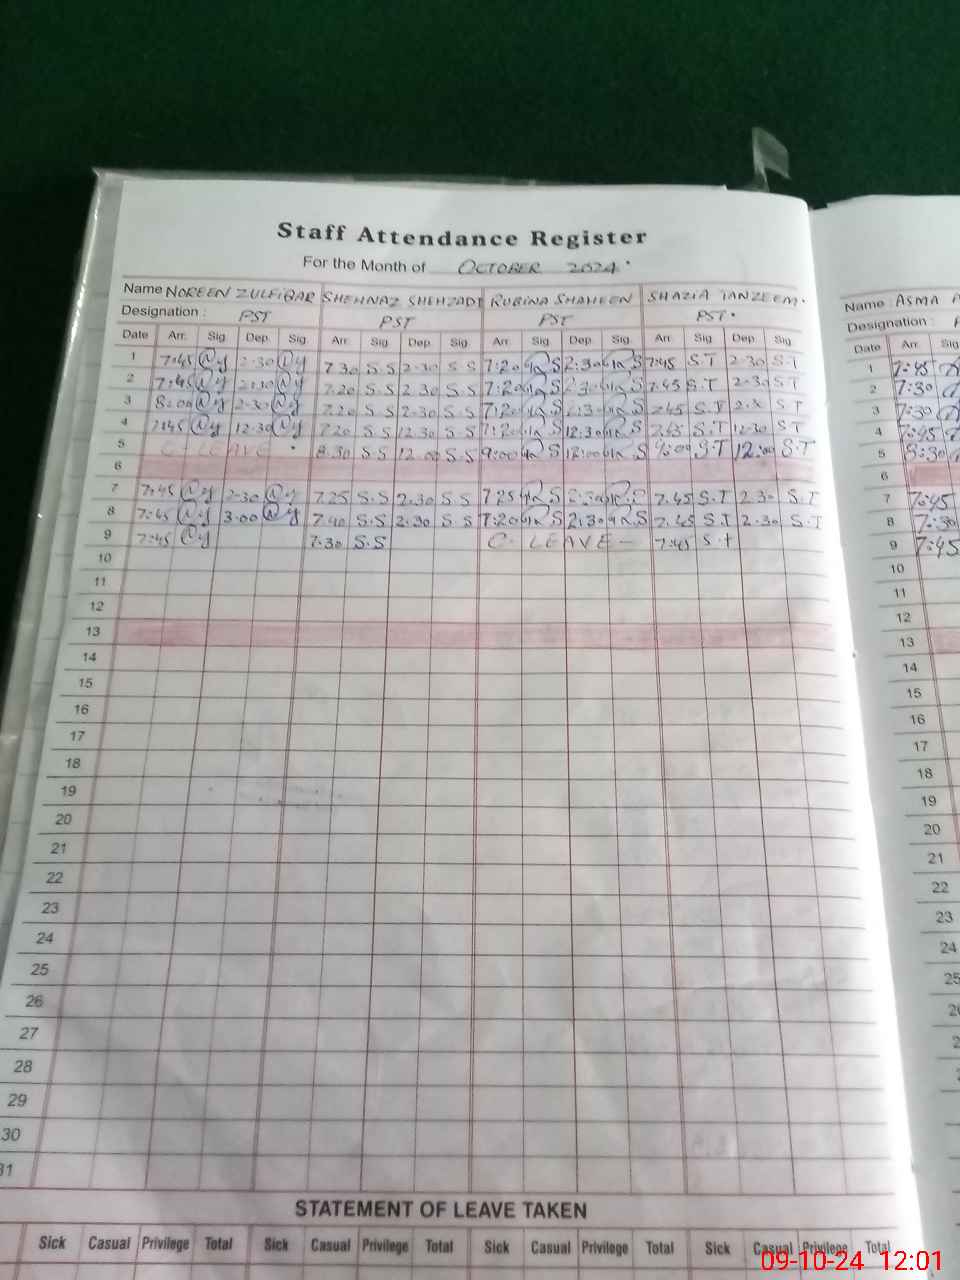 Staff Attendance Register
For the Month of OCTOBER 2024.
Name NOREEN ZULFIQAR SHEHNAZ SHEHZADI RUBINA SHAHEEN SHAZIA TANZEEM.
Designation : PST PST PST PST.
Date Arr. Sig Dep. Sig. Arr. Sig. Dep. Sig. Arr. Sig Dep. Sig. Arr. Sig Dep. Sig.
1 7:45 2-30 7 30 S.S 2-30 S S 7:20 S 2:30 S 7:45 S.T 2-30 S.T
2 7:45 2:30 7.20 S.S 2 30 S.S 7:20 S S 7.45 S.T 2-30 S T
3 8:00 2-30 7.20 S.S 2-30 S.S 7:20 S S S.T S T
4 7:45 12.30 7.20 S.S 12.30 S.S S 12:30 S 7.45 S.T 12-30 S T
5 C-LEAVE 8.30 S.S 12 00 S.S 9:00 S 12:00 S 9:00 S.T 12:00 S.T
6
7 7:45 2-30 7.25 S.S 2.30 S S 7 25 S 7.45 S.T 2 30 S.T
8 7:45 3-00 7.40 S.S 2.30 S S 7:20 S 2:30 S 7.45 S.T 2-30 S.T
9 7:45 7.30 S.S C- LEAVE - 7:45 S.t
10
11
12
13
14
15
16
17
18
19
20
21
22
23
24
25
26
27
28
29
30
31
STATEMENT OF LEAVE TAKEN
Sick Casual Privilege Total Sick Casual Privilege Total Sick Casual Privilege Total Sick Casual Privilege Total
Name : ASMA
Designation :
Date Arr. Sig
1 7:45
2 7:30
3 7:30
4 7:45
5 8:30
6
7 7:45
8 7:30
9 7:45
10
11
12
13
14
15
16
17
18
19
20
21
22
23
24
25
09-10-24 12:01